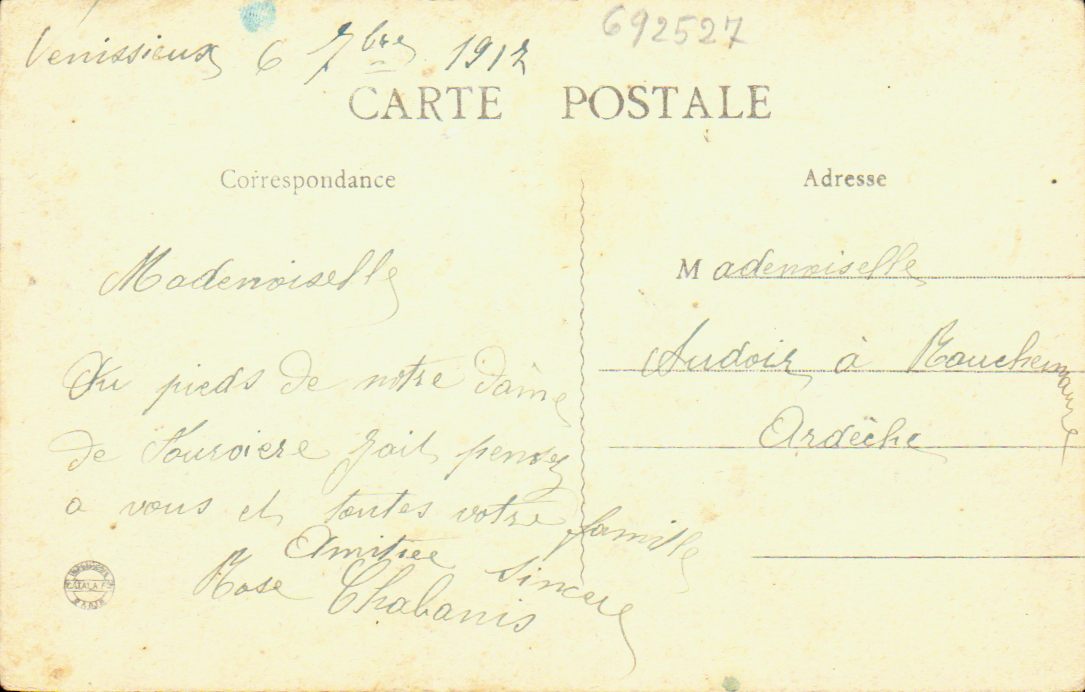 692527
Venissieux 6 7bre 1912
CARTE POSTALE
Correspondance
Mademoiselle
Au pieds de notre dame
de Fourviere jait pensez
a vous et toutes votre famille
Amitiee sincere
Rose Chabanis
Adresse
Mademoiselle
Audoir à Rauchemaure
Ardèche